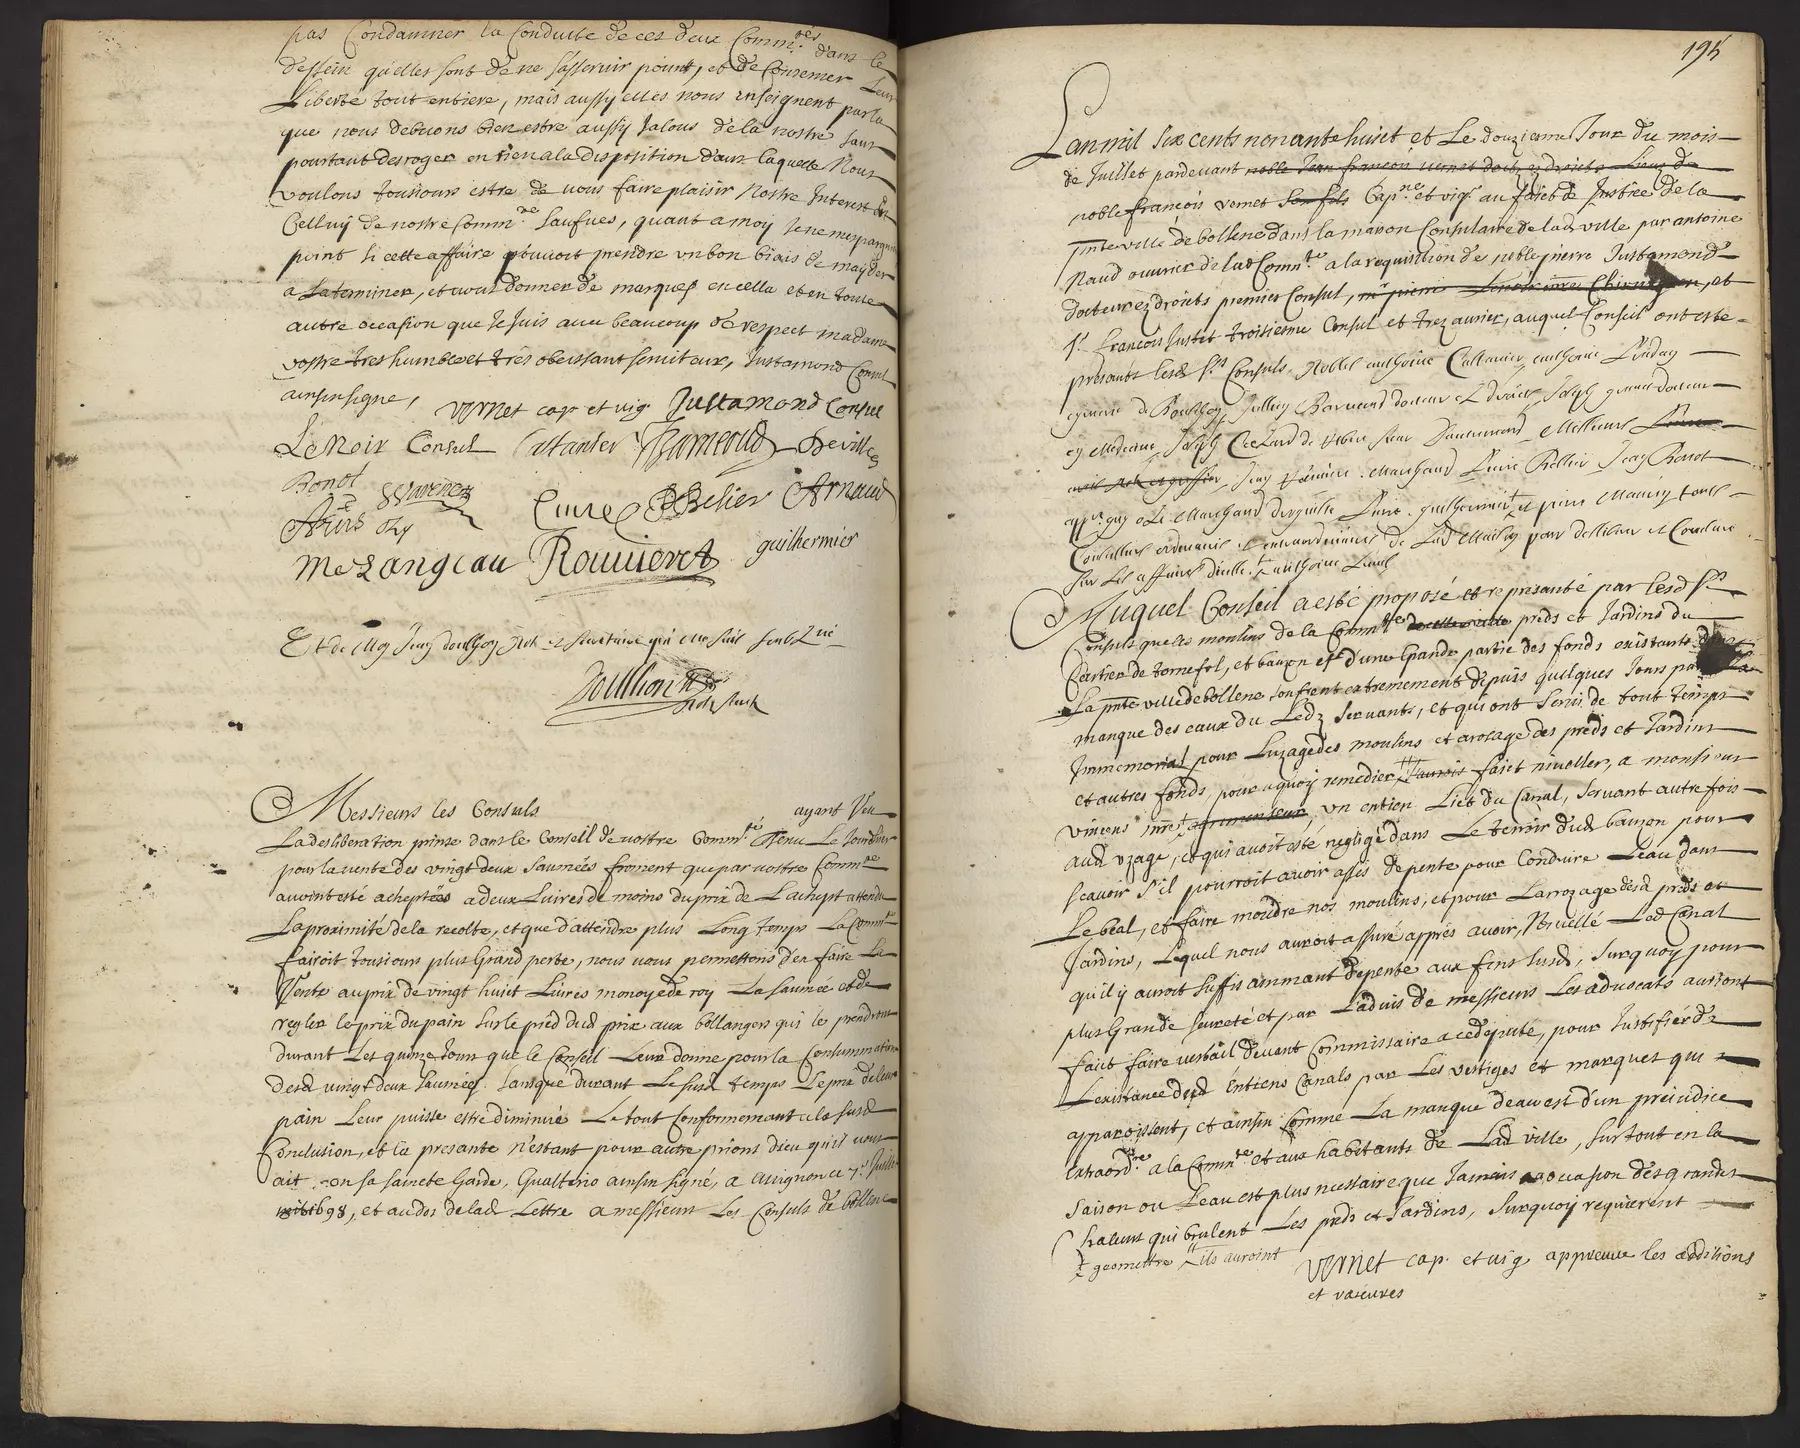 pas Condamner la Conduite de ces deux Comm.tes dans le
dessein qu'elles sont de ne s'asservir point, et de Conserver Leur
Liberté tout entiere, mais aussy elles nous enseignent par la
que nous debuons bien estre aussy Jalous de la nostre sans
pourtant desroger en rien a la disposition dans laquelle Nous
voulons tousiours estre de vous faire plaisir Nostre Interest et
Celluy de nostre Comm.te saufves, quant a moy Je ne mespargneray
point si cette affaire pouvoit prendre un bon biais de m'ayder
a la terminer, et vous donner de marques en cella et en toute
autre occasion que Je suis avec beaucoup de respect madame
vostre tres humble et tres obeissant serviteur, Justamond Consul
ainsin signé,
Vernet cap et vig. Justamond Consul
LeNoir Consul Cattanier Barneoud Deville
Bonot
Pierre Rellier Arnaud
Melangeau Rouvieret guilhermier
Et de Moy Jean doulhon
Doulhon
Messieurs les Consuls ayant Veu
La desliberation prinse dans le Conseil de vostre Comm.té tenu Le
pour la vente des vingt deux saumées froment que par vostre Comm.te
avoint esté acheptées a deux Livres de moins du prix de L'achept attendu
La proximité de la recolte, et que d'attendre plus Long temps La Comm.te
fairoit tousiours plus Grand perte, nous vous permettons d'en faire La
Vente au prix de vingt huict Livres monoye de roy La saumée et de
regler le prix du pain sur le pied dud prix aux bollangers qui le prendront
durant Les quinze Jours que le Conseil Leur donne pour la Consummation
desd vingt deux saumées. sans que durant Le susd temps Le prix de leur
pain Leur puisse estre diminué Le tout Conformemant a la susd
Conclusion, et la presante n'estant pour autre prions dieu qu'il vous
ait en sa saincte Garde, Gualterio ainsin signé, a Avignon ce 7.e Juillet
1698, et au dos de lad Lettre a messieurs Les Consuls de bollene
195
Lan mil six cents nonante huict et Le douziesme Jour du mois
de Juillet pardevant noble Jean françois vernet doct ez droicts Lieuz de
noble françois vernet son fils Cap.ne et vig.r au faict de Justice de la
p.nte ville de bollene dans la maison Consulaire de lad ville par antoine
Naud ouvrier de lad Comm.te a la requisition de noble pierre Justamond
docteur ez droicts premier Consul, m.e pierre Lenoir Chirurgien, et
s.r françois Justet troisiesme Consul et trezaurier, auquel Conseil ont esté
presants lesd s.rs Consuls, Nobles anthoine Cattanier, anthoine
Jullien Barneoud docteur ez droicts Joseph docteur
en Medecine, Joseph
Jean Marchand Pierre Rellier Jean Bonot
Marchand Pierre guilhermier et pierre
Conseillers ordinaires et extraordinaires de Lad Maison pour desliberer et Conclure
sur Les affaires d'icelle. anthoine
Auquel Conseil a esté proposé et represanté par lesd s.rs
Consuls que les moulins de la Comm.te de cette ville preds et Jardins du
Cartier de tornefol, et bauzon et d'une Grande partie des fonds existants dans
La p.nte ville de bollene souffrent extremement depuis quelques Jours par La
manque des eaux du Ledz servants, et qui ont servis de tout temps
Immemorial pour Luzage des moulins et arosage des preds et Jardins
et autres fonds, pour a quoy remedier J'aurois faict niveller, a monsieur
vincens m.re agrimenseur, un entien Lict du Canal, servant autrefois
aud uzage, et qui avoit esté negligé dans Le terroir dud bauzon pour
scavoir s'il pourroit avoir asses de pente pour Conduire L'eau dans
Le béal, et faire moudre nos moulins, et pour L'arrozage desd preds et
Jardins, Lequel nous auroit assuré appres avoir Nivellé Led Canal
qu'il y auroit suffisammant de pente aux fins susd, surquoy pour
plus Grande seureté et par L'advis de messieurs Les advocats auriont
faict faire verbail devant Commissaire a ce deputé, pour Justifier de
L'existance dud entiens Canals par Les vestiges et marques qui
apparoissent, et ainsin Comme La manque d'eau est d'un preiudice
extraord.re a la Comm.te et aux habitants de Lad ville, sur tout en la
saison ou L'eau est plus necessaire que Jamais a occasion des grandes
Chaleurs qui brulent Les preds et Jardins, surquoy requierent
geomettre ils auroint
Vernet cap. et vig appreuve les additions
et raieures